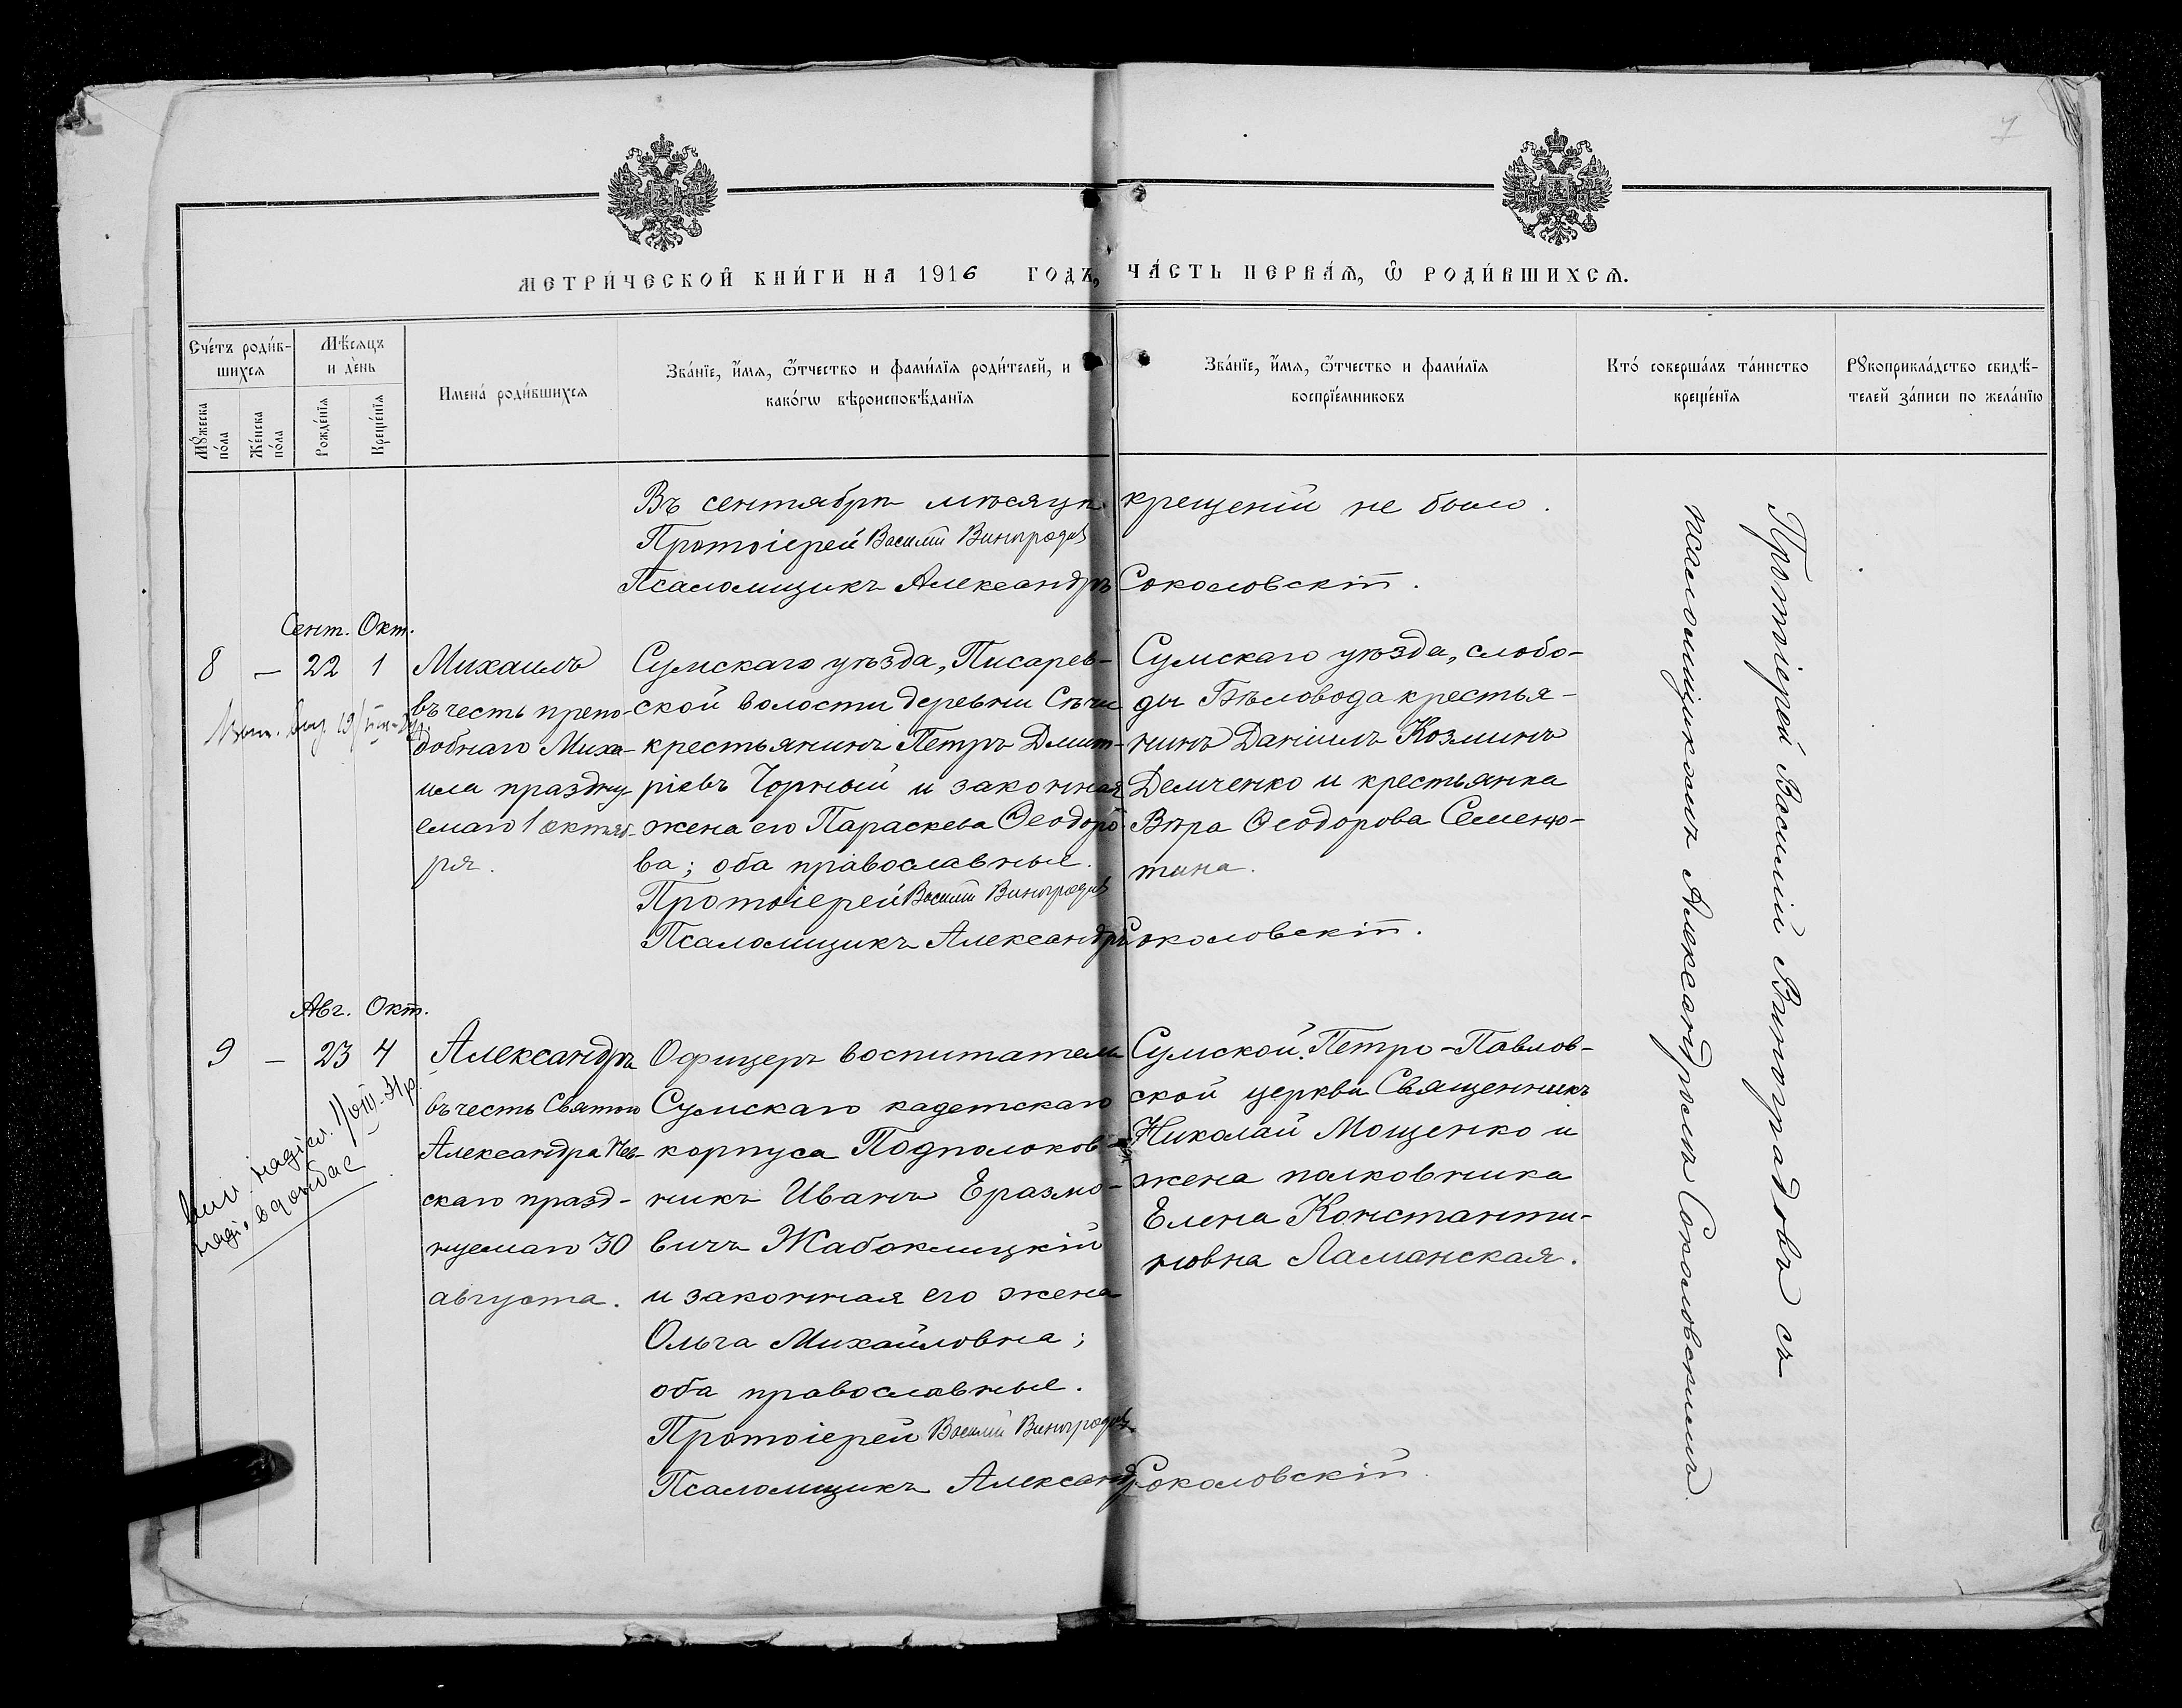 7
МЕТРИ́ЧЕСКОЙ КНИ́ГИ НА 1916 ГОДЪ, ЧА́СТЬ ПЕРВА́Ѧ, Ѽ РОДИ́ВШИХСѦ.
Сче́тъ роди́в-
шихсѧ
Мѣ́сѧцъ
и де́нь
Мꙋ́жеска
по́ла
Же́нска
по́ла
Рожде́нїѧ
Креще́нїѧ
Имена́ роди́вшихсѧ
Зва́нїе, и҆́мѧ, ѻ҆́тчество и фами́лїѧ роди́телей, и
како́гѡ вѣроисповѣ́данїѧ
Зва́нїе, и҆́мѧ, ѻ҆́тчество и фами́лїѧ
воспрїе́мниковъ
Кто́ соверша́лъ та́инство
креще́нїѧ
Рꙋкоприкла́дство свидѣ́-
телей за́писи по жела́нїю
Въ сентябрѣ мѣсяцѣ крещеній не было.
Протоіерей Василій Виноградовъ
Псаломщикъ Александръ Соколовскій.
Сент. Окт.
8 — 22 1
Михаилъ
въ честь препо-
добнаго Миха-
ила праздну-
емаго 1 октяб-
ря.
Сумскаго уѣзда, Писарев-
ской волости деревни Сѣчи
крестьянинъ Петръ Дмит-
ріевъ Чорный и законная
жена его Параскева Ѳеодоро-
ва; оба православные.
Протоіерей Василій Виноградовъ
Псаломщикъ Александръ Соколовскій.
Сумскаго уѣзда, слобо-
ды Бѣловода крестья-
нинъ Даніилъ Козминъ
Демченко и крестьянка
Вѣра Ѳеодорова Семеню-
тина.
Авг. Окт.
9 — 23 4
Александръ
въ честь Святого
Александра Нев-
скаго празд-
нуемаго 30
августа.
Офицеръ воспитатель
Сумскаго кадетскаго
корпуса Подполков-
никъ Иванъ Еразмо-
вичъ Жабоклицкій
и законная его жена
Ольга Михайловна;
оба православные.
Протоіерей Василій Виноградовъ
Псаломщикъ Александръ Соколовскій
Сумской Петро-Павлов-
ской церкви Священникъ
Николай Мощенко и
жена полковника
Елена Константи-
новна Ламанская.
Протоіерей Василій Виноградовъ съ
псаломщикомъ Александромъ Соколовскимъ.